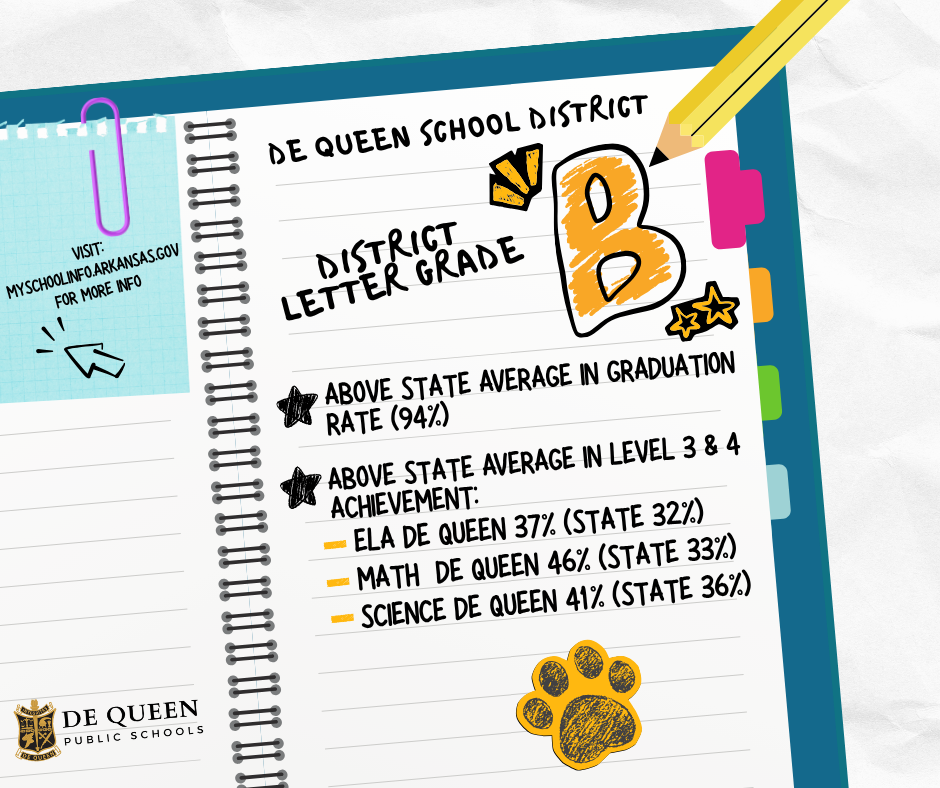 DE QUEEN SCHOOL DISTRICT
B
DISTRICT
LETTER GRADE
VISIT:
MYSCHOOLINFO.ARKANSAS.GOV
FOR MORE INFO
ABOVE STATE AVERAGE IN GRADUATION
RATE (94%)
ABOVE STATE AVERAGE IN LEVEL 3 & 4
ACHIEVEMENT:
ELA DE QUEEN 37% (STATE 32%)
MATH DE QUEEN 46% (STATE 33%)
SCIENCE DE QUEEN 41% (STATE 36%)
DE QUEEN
PUBLIC SCHOOLS
DE QUEEN